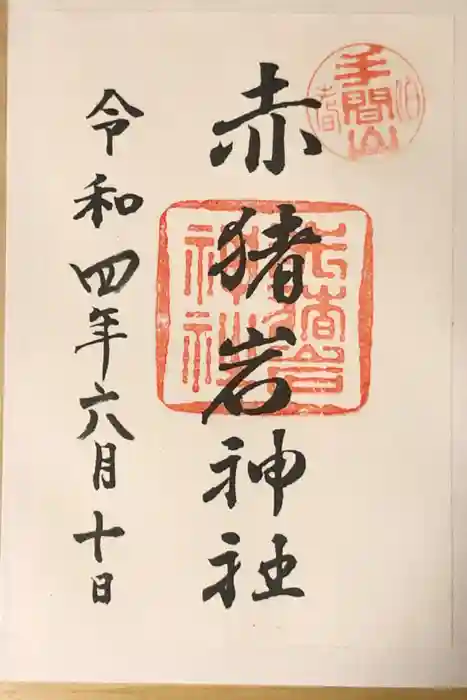 手間山
伯耆
赤猪岩神社
赤猪岩
神社
令和四年六月十日